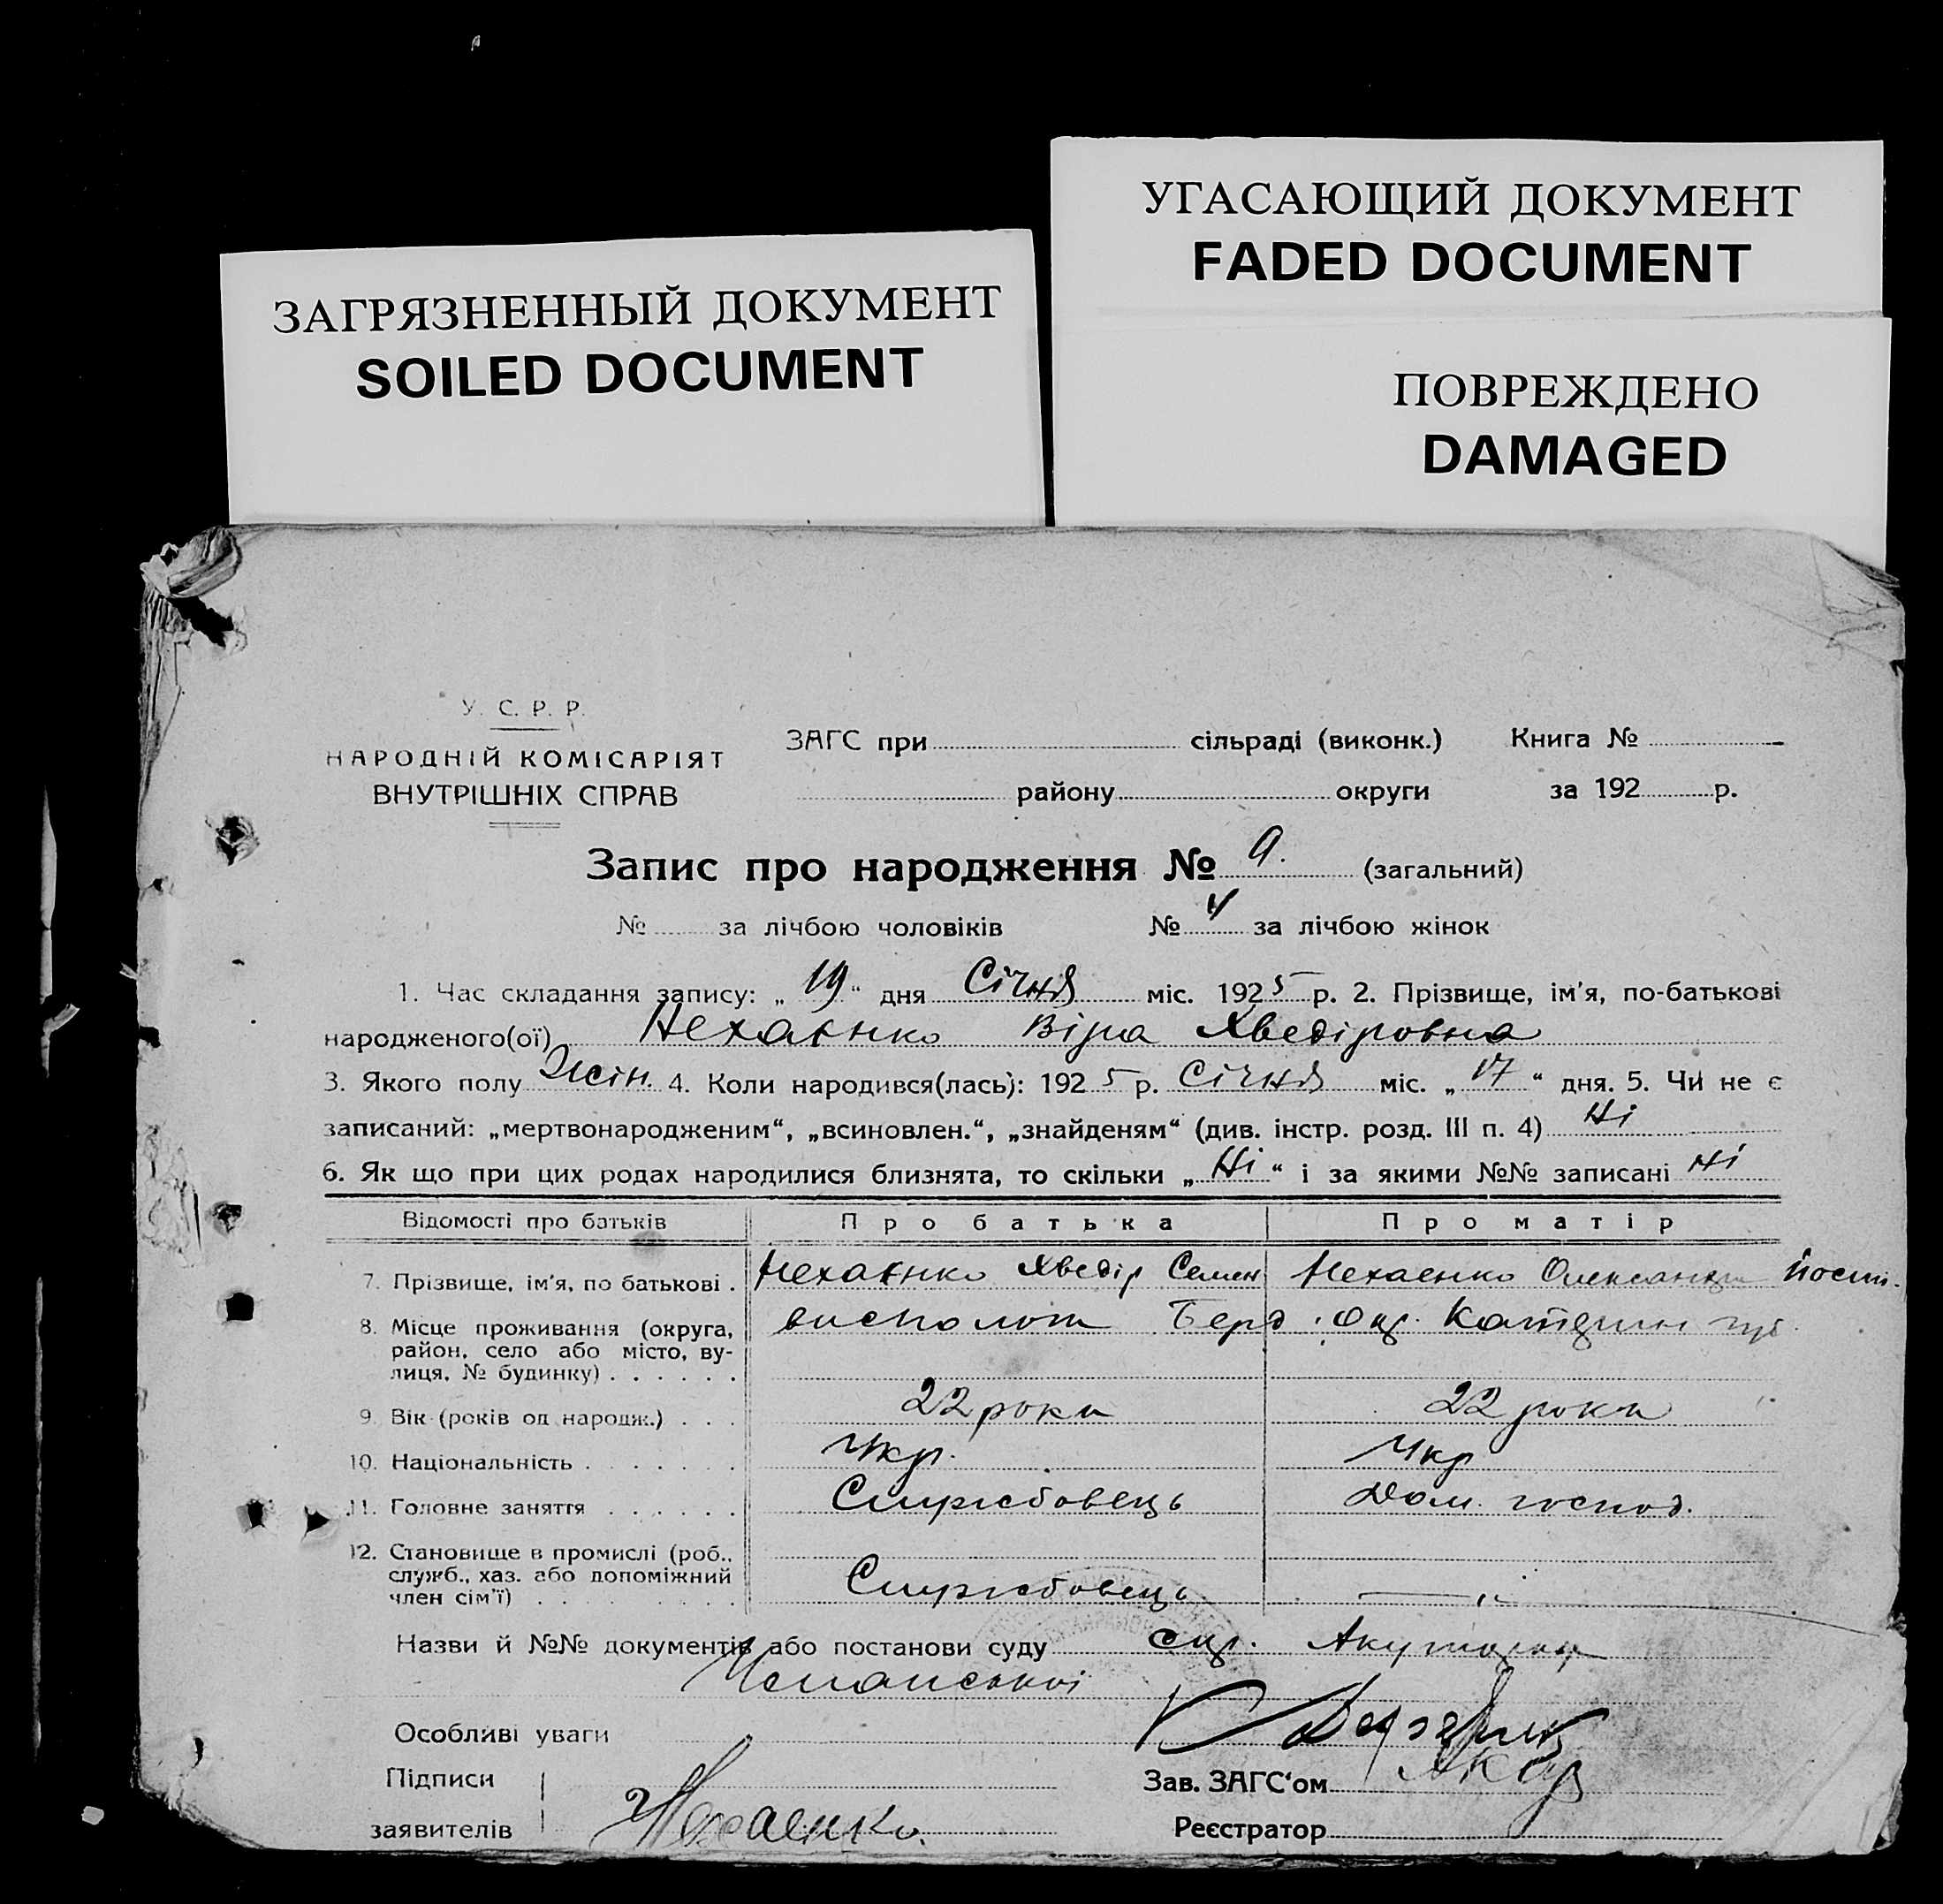 УГАСАЮЩИЙ ДОКУМЕНТ
FADED DOCUMENT
ЗАГРЯЗНЕННЫЙ ДОКУМЕНТ
SOILED DOCUMENT
ПОВРЕЖДЕНО
DAMAGED
У. С. Р. Р.
НАРОДНІЙ КОМІСАРІЯТ
ВНУТРІШНІХ СПРАВ
ЗАГС при сільраді (виконк.) Книга №
району округи за 192 р.
Запис про народження № 9. (загальний)
№ за лічбою чоловіків № 4 за лічбою жінок
1. Час складання запису: „19“ дня Січня міс. 1925 р. 2. Прізвище, ім'я, по-батькові
народженого(ої) Нехаєнко Віра Хведіровна
3. Якого полу Жін. 4. Коли народився(лась): 1925 р. Січня міс. „17“ дня. 5. Чи не є
записаний: „мертвонародженим“, „всиновлен.“, „знайденям“ (див. інстр. розд. III п. 4) Ні
6. Як що при цих родах народилися близнята, то скільки „Ні“ і за якими №№ записані Ні
Відомості про батьків Про батька Про матір
7. Прізвище, ім'я, по батькові . Нехаєнко Хведір Семен Нехаенко Олександра
8. Місце проживання (округа, район, село або місто, вулиця, № будинку) . . . . . . Берд. Окр. Катерин
9. Вік (років од народж.) . . . 22 роки 22 роки
10. Національність . . . . . . . Укр. Укр
11. Головне заняття . . . . . . Службовець Дом. господ.
12. Становище в промислі (роб., служб., хаз. або допоміжний член сім'ї) . . . . . . . . Службовець
Назви й №№ документів або постанови суду
Особливі уваги
Підписи
Зав. ЗАГС'ом
заявителів Нехаенко.
Реєстратор